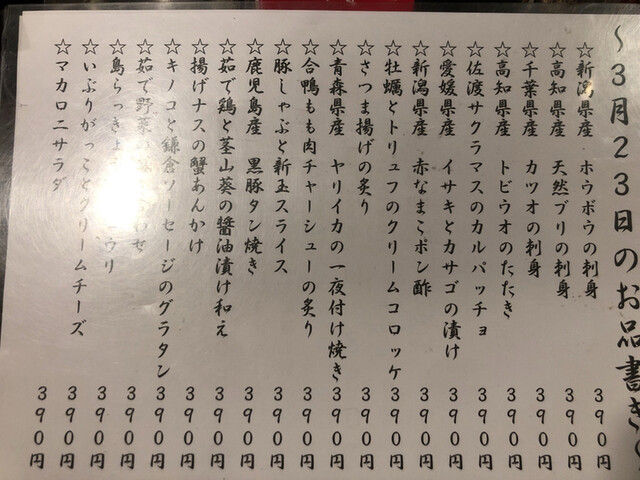 ～３月２３日のお品書き～
☆新潟県産 ホウボウの刺身 ３９０円
☆高知県産 天然ブリの刺身 ３９０円
☆千葉県産 カツオの刺身 ３９０円
☆高知県産 トビウオのたたき ３９０円
☆佐渡サクラマスのカルパッチョ ３９０円
☆愛媛県産 イサキとカサゴの漬け ３９０円
☆新潟県産 赤なまこポン酢 ３９０円
☆牡蠣とトリュフのクリームコロッケ ３９０円
☆さつま揚げの炙り ３９０円
☆青森県産 ヤリイカの一夜付け焼き ３９０円
☆合鴨もも肉チャーシューの炙り ３９０円
☆豚しゃぶと新玉スライス ３９０円
☆鹿児島産 黒豚タン焼き ３９０円
☆茹で鶏と茎山葵の醬油漬け和え ３９０円
☆揚げナスの蟹あんかけ ３９０円
☆キノコと鎌倉ソーセージのグラタン ３９０円
☆茹で野菜の わせ ３９０円
☆島らっきょ ウリ ３９０円
☆いぶりがっことクリームチーズ ３９０円
☆マカロニサラダ ３９０円